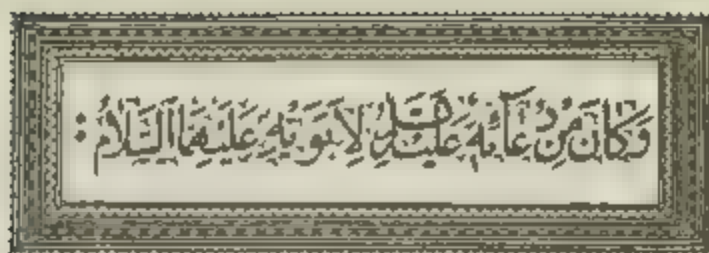 وَكَانَ مِنْ دُعَائِهِ عَلَيْهِ السَّلَامُ لِأَبَوَيْهِ عَلَيْهِمَا السَّلَامُ :